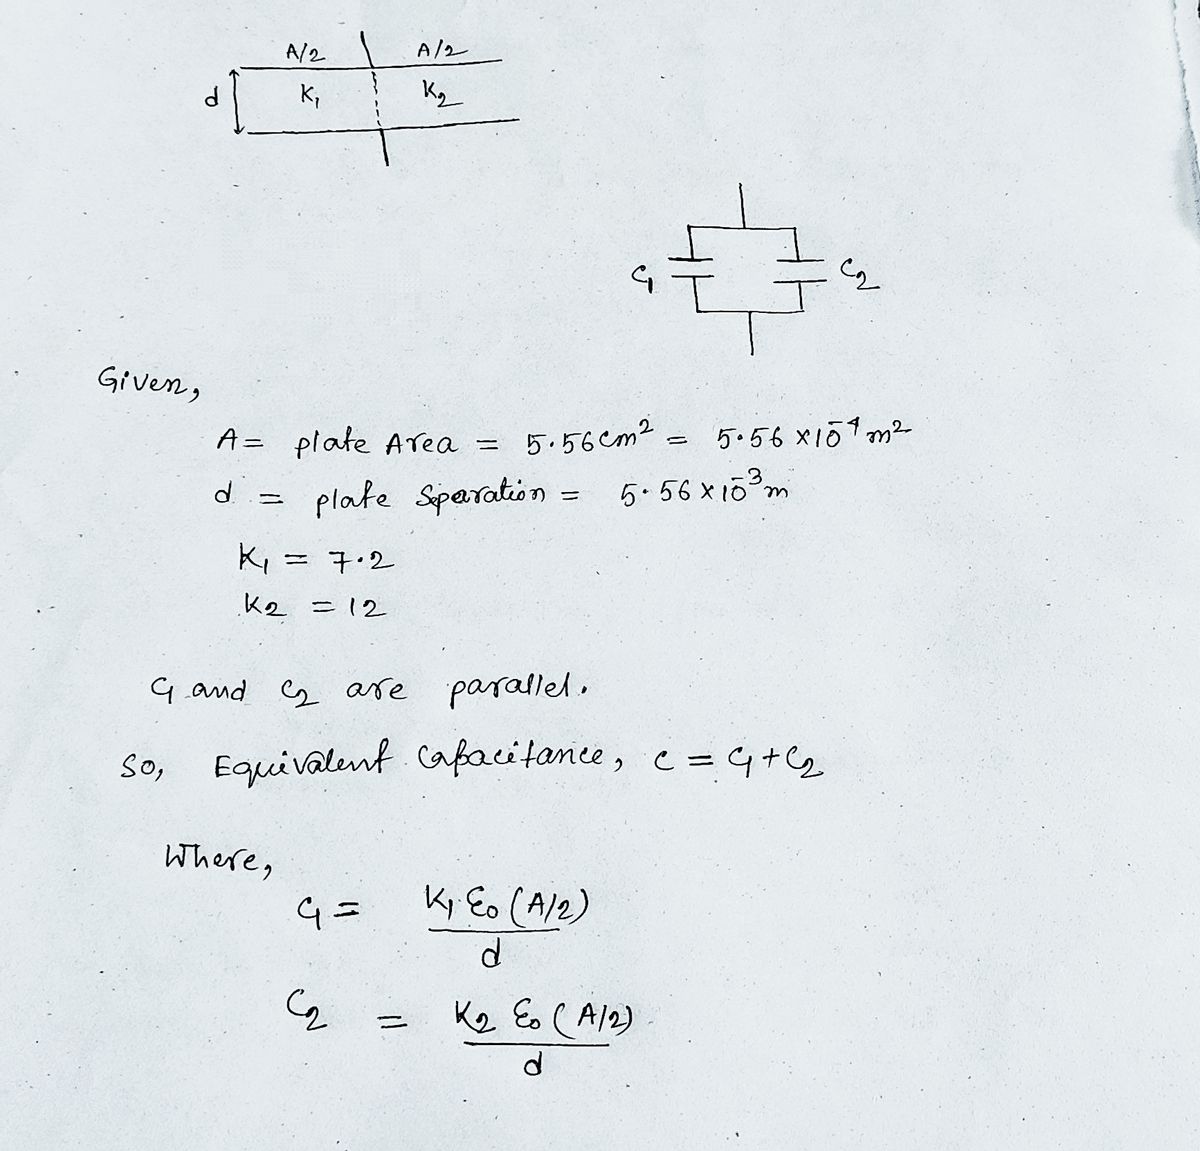 A/2 A/2
d K₁ K₂
C₁ C₂
Given,
A = plate Area = 5.56 cm² = 5.56 × 10⁻⁴ m²
d = plate Separation = 5.56 × 10⁻³ m
K₁ = 7.2
K₂ = 12
C₁ and C₂ are parallel.
So, Equivalent Capacitance, C = C₁ + C₂
Where,
C₁ = K₁ ε₀ (A/2)
d
C₂ = K₂ ε₀ (A/2)
d